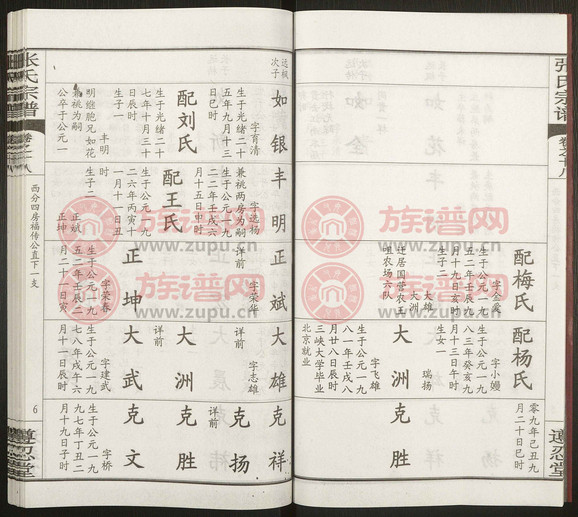 张氏宗谱
卷之十八
遵忍堂
配梅氏
字金爱
生于公元一九
五二年壬辰十
月十九日亥时
生子二
大雄
大洲
迁居国营农王
咀农场六队
配杨氏
字小嫚
生于公元一九
八三年癸亥九
月十三日午时
生女一
瑞扬
大洲
字飞雄
生于公元一九
八一年壬戌八
月廿八日辰时
三峡大学毕业
北京就业
零九年己丑九
月二十日巳时
克胜
达枫
次子
如银
字育清
生于光绪二十
五年九月十三
配刘氏
生于光绪二十
七年十月三十
生子一
丰明
明继胞兄如花
兼祧为嗣
公卒于公元一
丰明
字选杨
兼祧两房为嗣
生于公元一九
二二年壬戌六
月十五日申时
配王氏
生于公元一九
二六年丙寅十
一月十一日丑
时
生子二
正斌
正坤
正斌
字荣华
详前
正坤
字荣春
生于公元一九
五二年壬辰二
月二十一日寅
大雄
字志雄
详前
大洲
详前
大武
字建武
生于公元一九
七八年戊午六
月十一日辰时
克祥
克扬
详前
克胜
克文
字桥
生于公元一九
九七年丁丑二
月十九日子时
张氏宗谱
卷之十八
西分四房福传公直下一支
6
遵忍堂
族谱网
www.zupu.cn
族谱网
www.zupu.cn